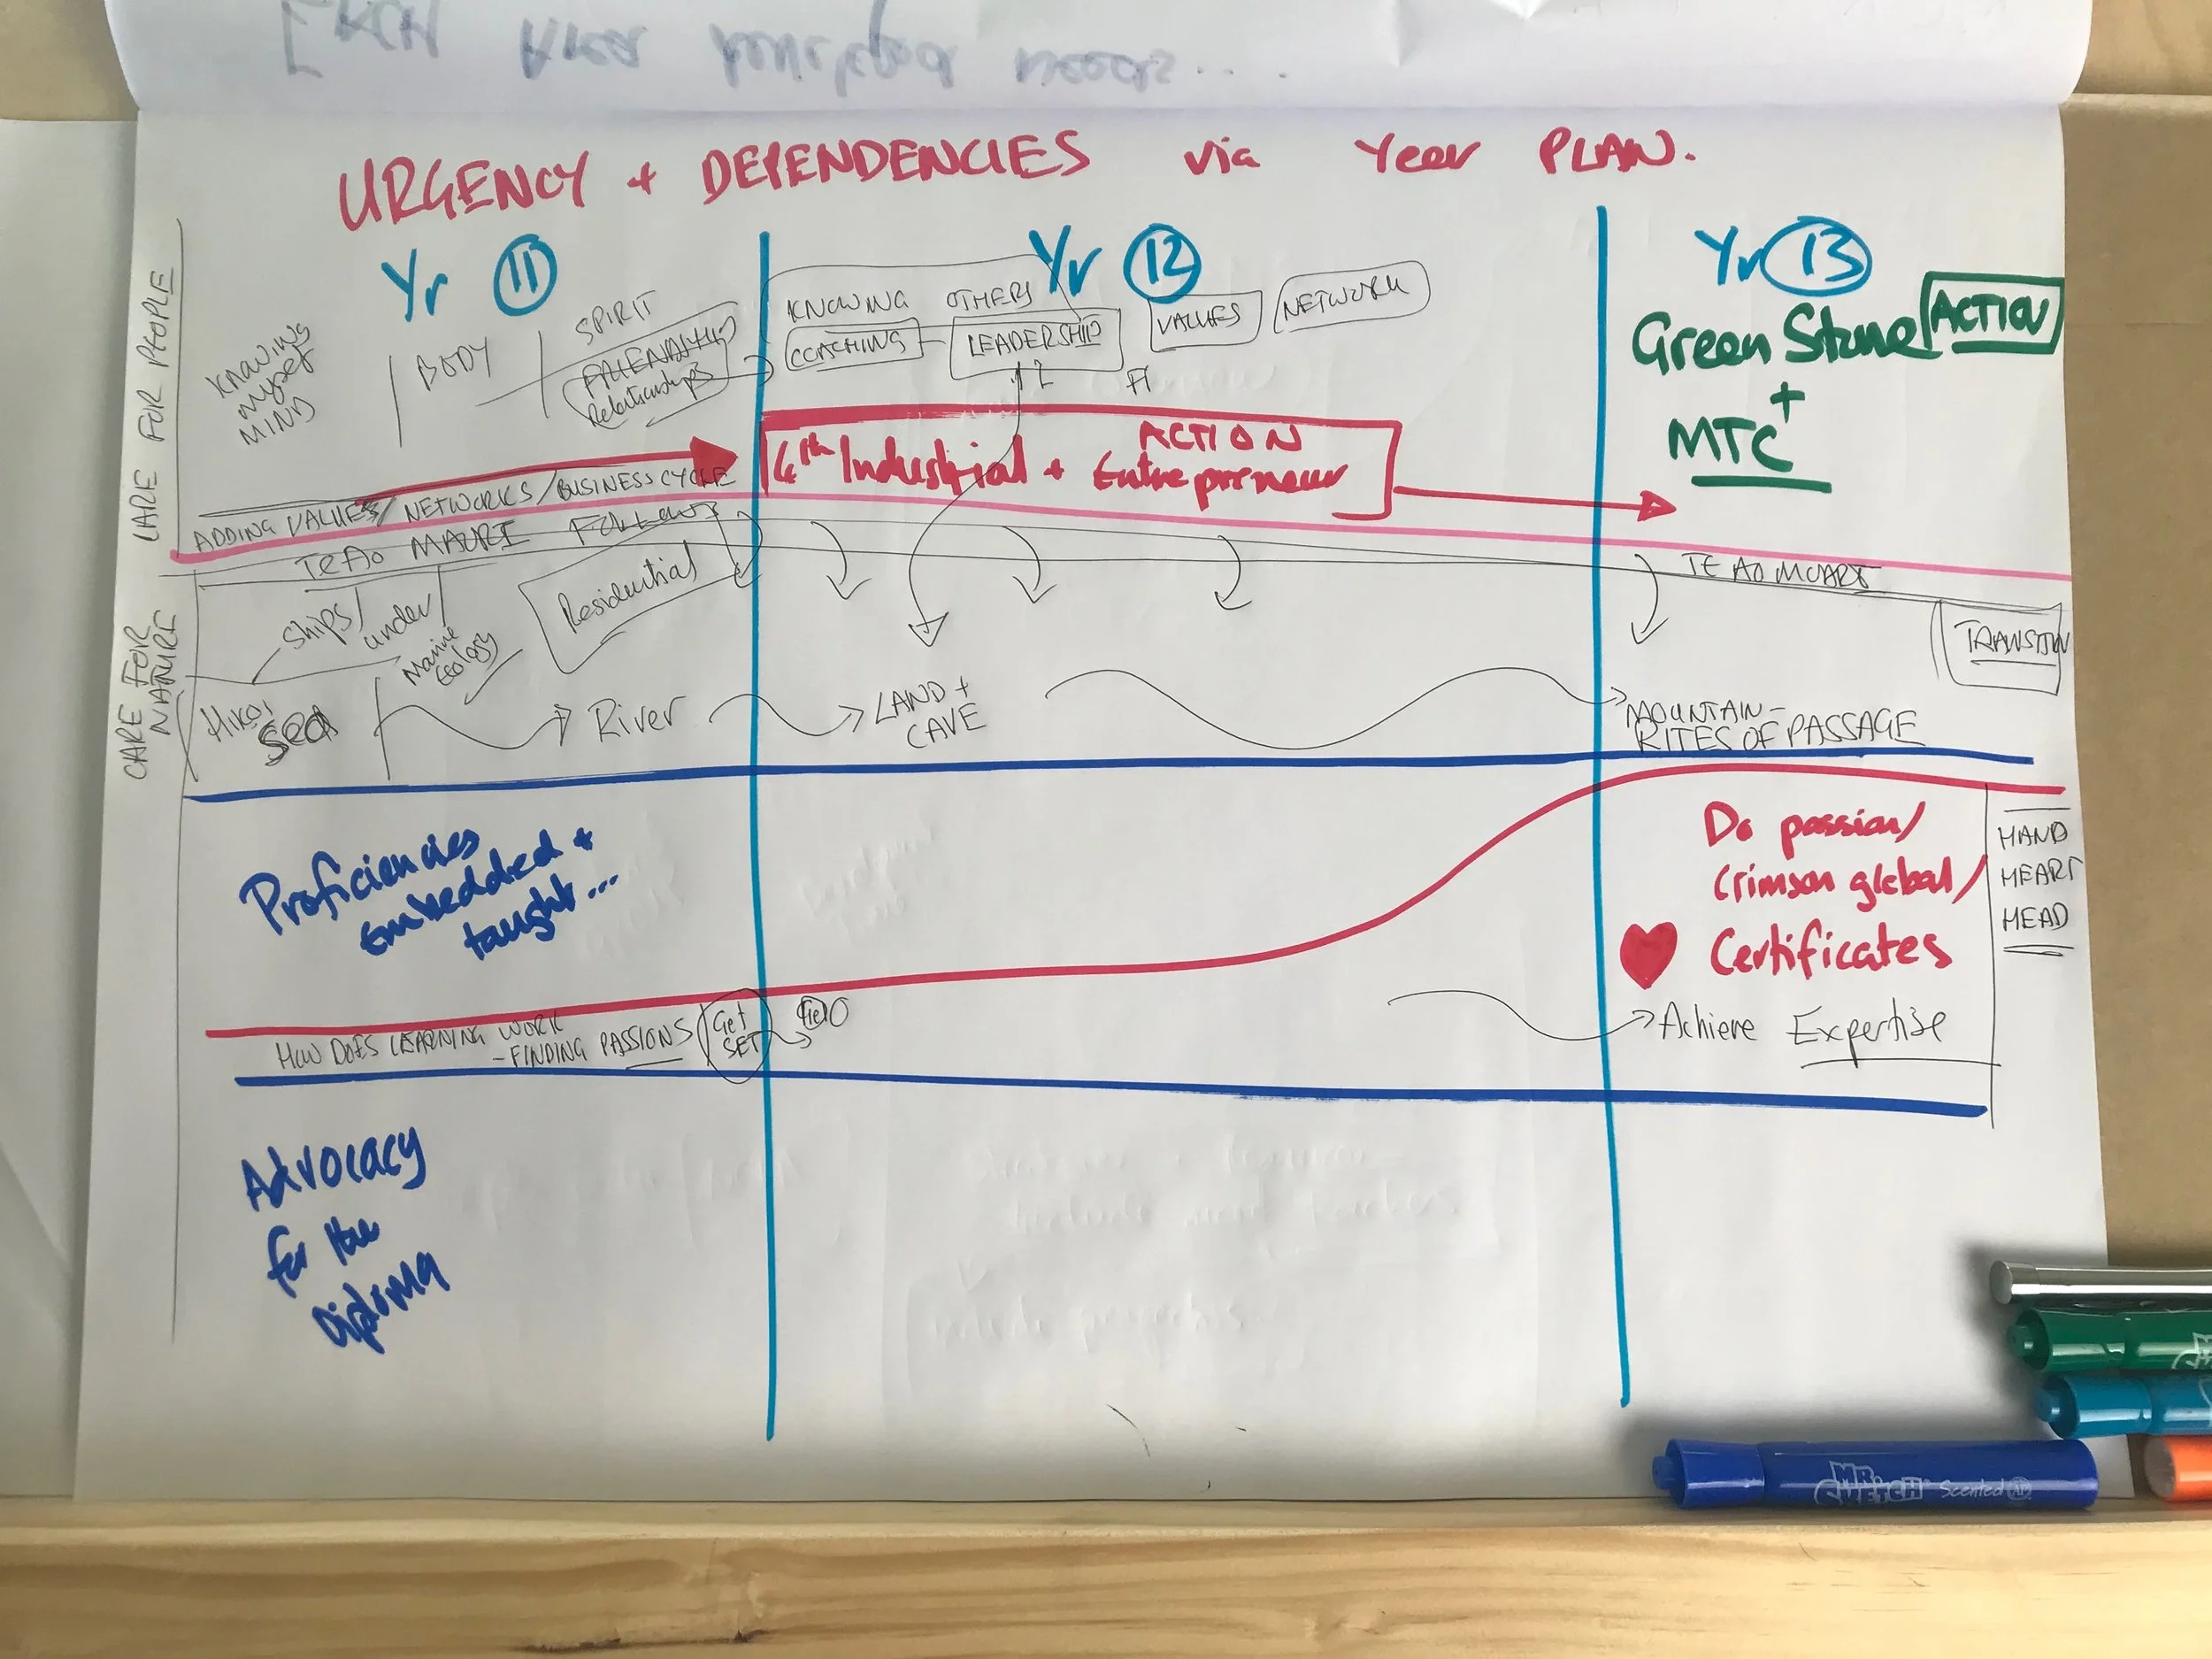 URGENCY + DEPENDENCIES via Year PLAN.
Yr 11
Yr 12
Yr 13
CARE FOR PEOPLE
KNOWING
myself
MIND
BODY
SPIRIT
Relationships
KNOWING OTHERS
COACHING
LEADERSHIP
VALUES
NETWORK
Green Stone
ACTION
+
MTC
ACTION
4th Industrial + Entrepreneur
ADDING VALUES/NETWORKS/BUSINESS CYCLE
TE AO MAURI
TE AO MOARI
CARE FOR
NATURE
ships/
under
Marine
Ecology
Residential
TRANSITION
Hikoi
sea
River
LAND +
CAVE
MOUNTAIN -
RITES OF PASSAGE
Proficiencies
Embedded +
taught...
Do passion/
Crimson global/
Certificates
HAND
HEART
HEAD
HOW DOES LEARNING WORK
- FINDING PASSIONS
Get
SET
Achieve Expertise
Advocacy
for the
Diploma
MR. SKETCH Scented AP